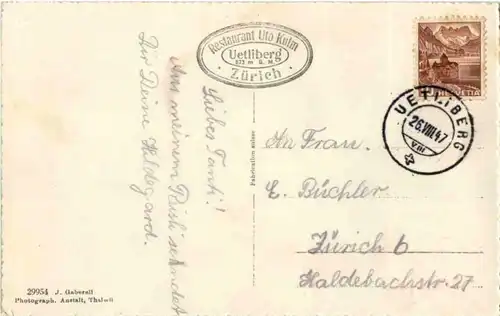 Restaurant Uto Kulm
Uetliberg
873 m ü. M.
Zürich
HELVETIA
UETLIBERG
26.VIII.47
VIII
Liebes Tanti!
Aus meinem Rösli sendet
Dir Deine Hildegard.
Fabrication suisse
An Frau.
E. Büchler
Zürich 6
Haldebachstr. 27
29954 J. Gaberell
Photograph. Anstalt, Thalwil